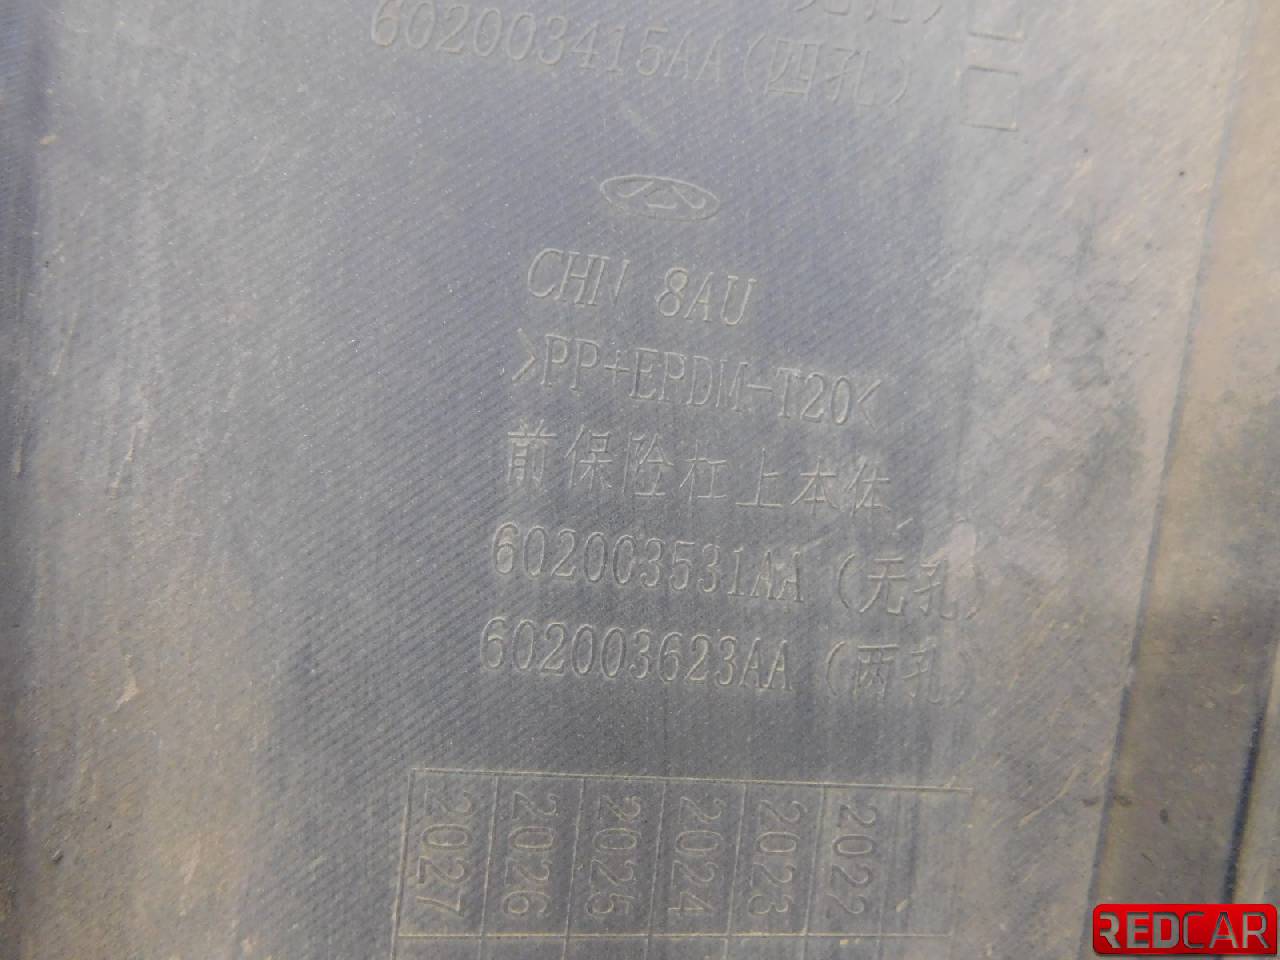 602003415AA(四孔)
CHN 8AU
>PP+EPDM-T20<
前保险杠上本体
602003531AA(无孔)
602003623AA(两孔)
2027
2026
2025
2024
2023
2022
REDCAR